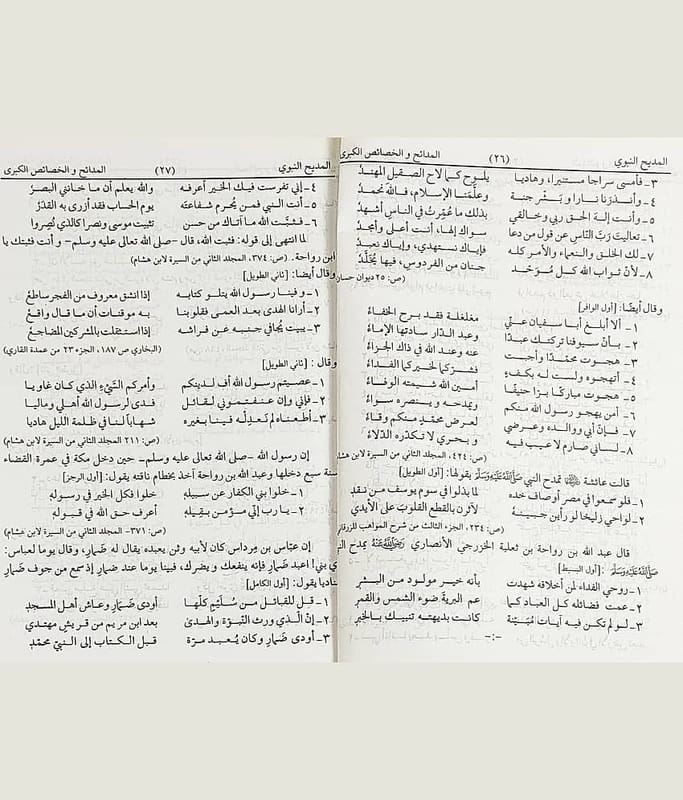 المديح النبوي (٢٦) المدائح و الخصائص الكبرى
٣- فأمسى سراجا مستنيرا، وهاديا يلوح كما لاح الصقيل المهندُ
٤- وأنذرنا نارا و بشر جنة وعلّمنا الإسلام، فالله نحمدُ
٥- وأنت إلهَ الحق ربي وخالقي بذلك ما عُمّرتُ في الناس أشهدُ
٦- تعاليتَ ربَّ الناس عن قول من دعا سواك إلها، أنت أعلى وأمجدُ
٧- لك الخلق والنعماء والأمر كله فإياك نستهدي، وإياك نعبدُ
٨- لأن ثواب الله كل مُوَحّد جنان من الفردوس، فيها يُخَلَّدُ
(ص: ٢٥ ديوان حسان
وقال أيضًا: [أول الوافر]
١- ألا أبلغ أبا سفيان عنّي مغلغلة فقد برح الخفاءُ
٢- بأن سيوفنا تركتك عبدًا وعبد الدّار سادتها الإماءُ
٣- هجوت محمّدًا وأجبت عنه وعند الله في ذاك الجزاءُ
٤- أتهجوه ولست له بكفء فشرّكما لخيركما الفداءُ
٥- هجوت مباركًا برًا حنيفًا أمين الله شيمته الوفاءُ
٦- أمن يهجو رسول الله منكم ويمدحه وينصره سواءُ
٧- فإنّ أبي ووالده وعرضي لعرض محمّدٍ منكم وقاءُ
٨- لساني صارم لا عيب فيه و بحري لا تكدّره الدّلاءُ
(ص: ٤٢٤، المجلد الثاني من السيرة لابن هشا
قالت عائشة تمدح النبي ﷺ بقولها: [أول الطويل]
١- فلو سمعوا في مصر أوصاف خده لما بذلوا في سوم يوسف من نقدِ
٢- لواحي زليخا لو رأين جبينهُ لآثرن بالقطع القلوبَ على الأيدي
(ص: ٢٣٤، الجزء الثالث من شرح المواهب للزرقان
قال عبد الله بن رواحة بن ثعلبة الخزرجي الأنصاري يمدح الن
ﷺ: [أول البسيط]
١- روحي الفداء لمن أخلاقه شهدت بأنه خير مولود من البشرِ
٢- عمت فضائله كل العباد كما عم البرية ضوء الشمس والقمرِ
٣- لو لم تكن فيه آيات مُبَيّنة كانت بديهته تنبيك بالخبرِ
-:-
المديح النبوي (٢٧) المدائح و الخصائص الكبرى
٤- إني تفرست فيك الخير أعرفه والله يعلم أن ما خانني البصرُ
٥- أنت النبي فمن يُحرم شفاعته يوم الحساب فقد أزرى به القدَرُ
٦- فثبَّت الله ما آتاك من حسن تثبيت موسى ونصرا كالذي نُصِروا
لما انتهى إلى قوله: فثبت الله، قال -صلى الله تعالى عليه وسلم- و أنت فثبتك يا
ابن رواحة. (ص: ٣٧٤، المجلد الثاني من السيرة لابن هشام)
وقال أيضا: [ثاني الطويل]
١- وفينا رسول الله يتلو كتابه إذا انشق معروف من الفجر ساطعُ
٢- أرانا الهدى بعد العمى فقلوبنا به موقنات أن ما قال واقعُ
٣- يبيت يُجافي جنبه عن فراشه إذا استثقلت بالمشركين المضاجعُ
(البخاري ص ١٨٧، الجزء ٢٣ من عمدة القاري)
وقال: [ثاني الطويل]
١- عصيتم رسول الله أف لدينكم وأمركم السّيّء الذي كان غاويا
٢- فإنّي وإن عنفتموني لقائل فدى لرسول الله أهلي وماليا
٣- أطعناه لم نعدله فينا بغيره شهابًا لنا في ظلمة الليل هاديا
(ص: ٢١١ المجلد الثاني من السيرة لابن هشام)
إن رسول الله -صلى الله تعالى عليه وسلم- حين دخل مكة في عمرة القضاء
سنة سبع دخلها وعبد الله بن رواحة آخذ بخطام ناقته يقول: [أول الرجز]
١- خلوا بني الكفار عن سبيلهِ خلوا فكل الخير في رسولهِ
٢- يا رب إني مؤمن بقيلهِ أعرف حق الله في قبولهِ
(ص: ٣٧١- المجلد الثاني من السيرة لابن هشام)
إن عبّاس بن مِرداس كان لأبيه وثن يعبده يقال له ضَمارِ، وقال يوما لعباس:
أي بني! اعبد ضَمارِ فإنه ينفعك و يضرك، فبينا يوما عند ضمارِ إذ سمع من جوف ضَمارِ
مناديا يقول: [أول الكامل]
١- قبل للقبائل من سُلَيْم كلّها أودى ضَمارِ وعاش أهل المسجدِ
٢- إنّ الّذي ورث النّبوّة والهدىٰ بعد ابن مريم من قريش مهتدي
٣- أودى ضَمارِ وكان يُعبد مرّة قبل الكتاب إلى النّبيّ محمّدِ